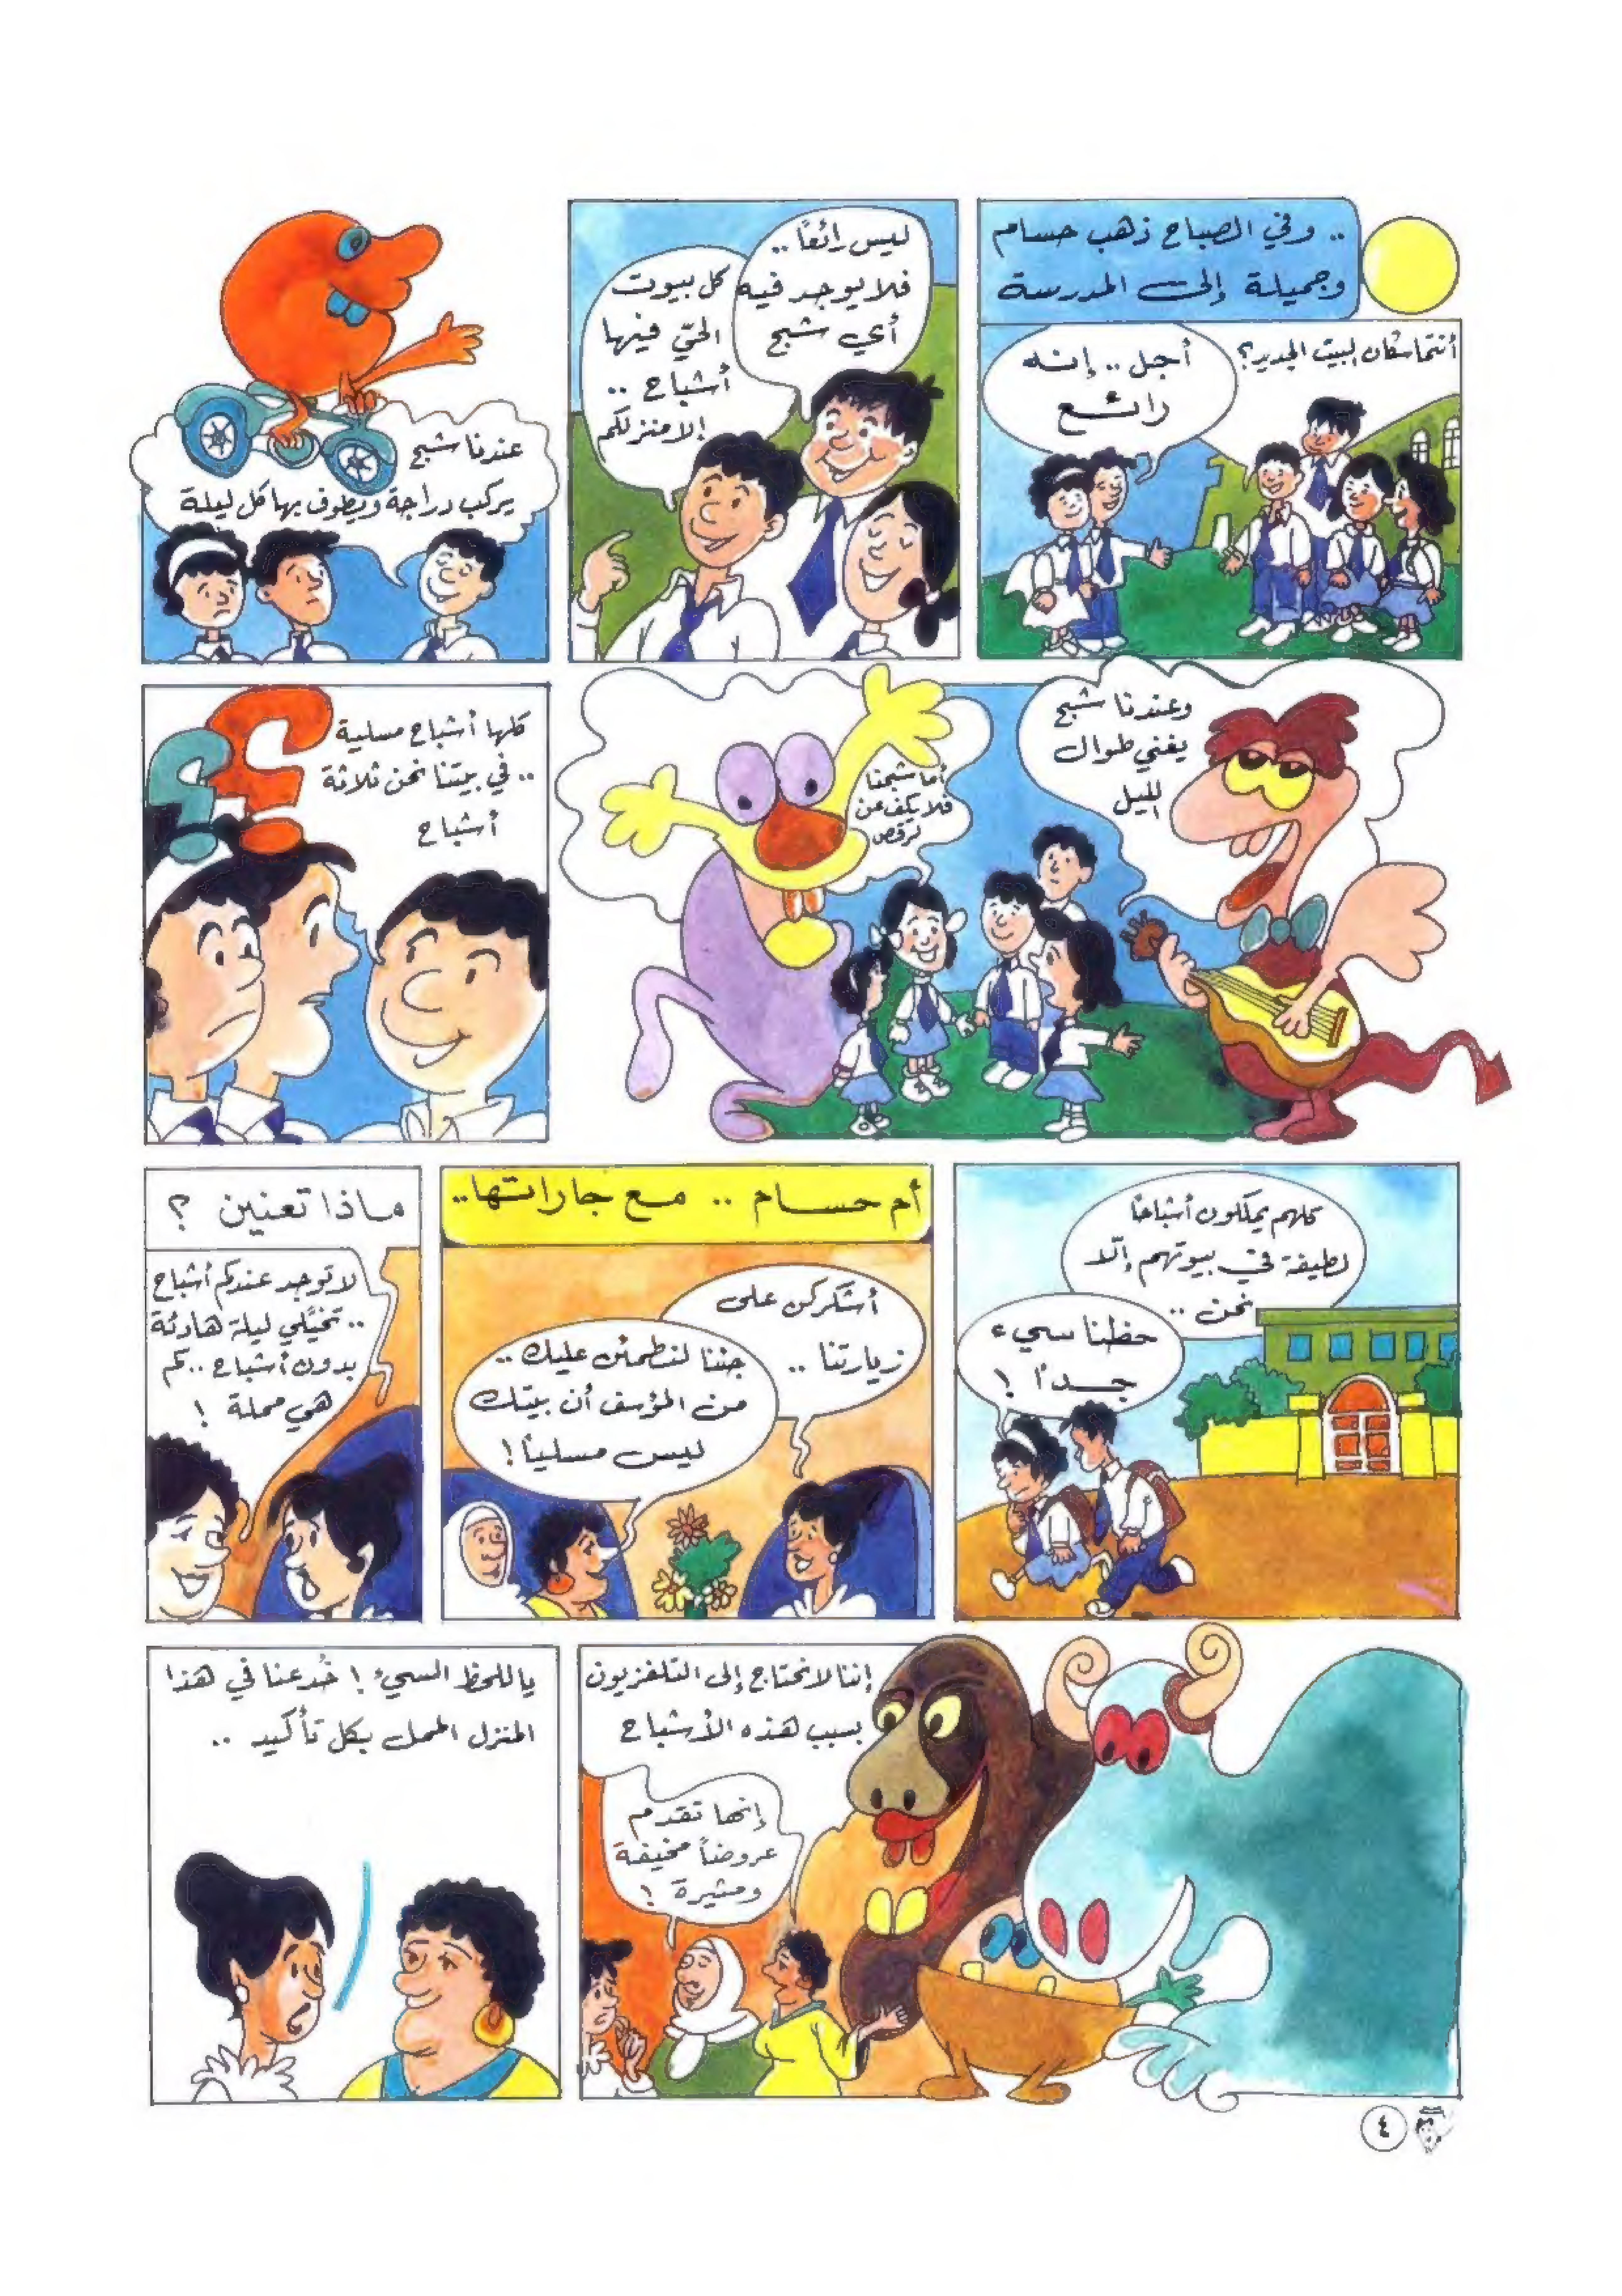 .. وفي الصباح ذهب حسام
وجميلة إلى المدرسة
أنتما سكان البيت الجديد؟
أجل .. إنه
رائع
ليس رائعاً ..
فلا يوجد فيه
أي شبح
كل بيوت
الحيّ فيها
أشباح ..
إلا منزلكم
عندنا شبح
يركب دراجة ويطوف بها كل ليلة
وعندنا شبح
يغني طوال
الليل
أما شبحنا
فلا يكف عن
الرقص
كلها أشباح مسلية
.. في بيتنا نحن ثلاثة
أشباح
؟
؟
كلهم يملكون أشباحاً
لطيفة في بيوتهم إلّا
نحن ..
حظنا سيء
جداً !
أم حسام .. مع جاراتها..
أشكركن على
زيارتنا ..
جئنا لنطمئن عليك ..
من المؤسف أن بيتك
ليس مسلياً !
ماذا تعنين ؟
لا توجد عندكم أشباح
.. تخيّلي ليلة هادئة
بدون أشباح .. كم
هي مملة !
إننا لا نحتاج إلى التلفزيون
بسبب هذه الأشباح
إنها تقدم
عروضاً مخيفة
ومثيرة !
ياللحظ السيء ! خُدعنا في هذا
المنزل الممل بكل تأكيد ..
٤